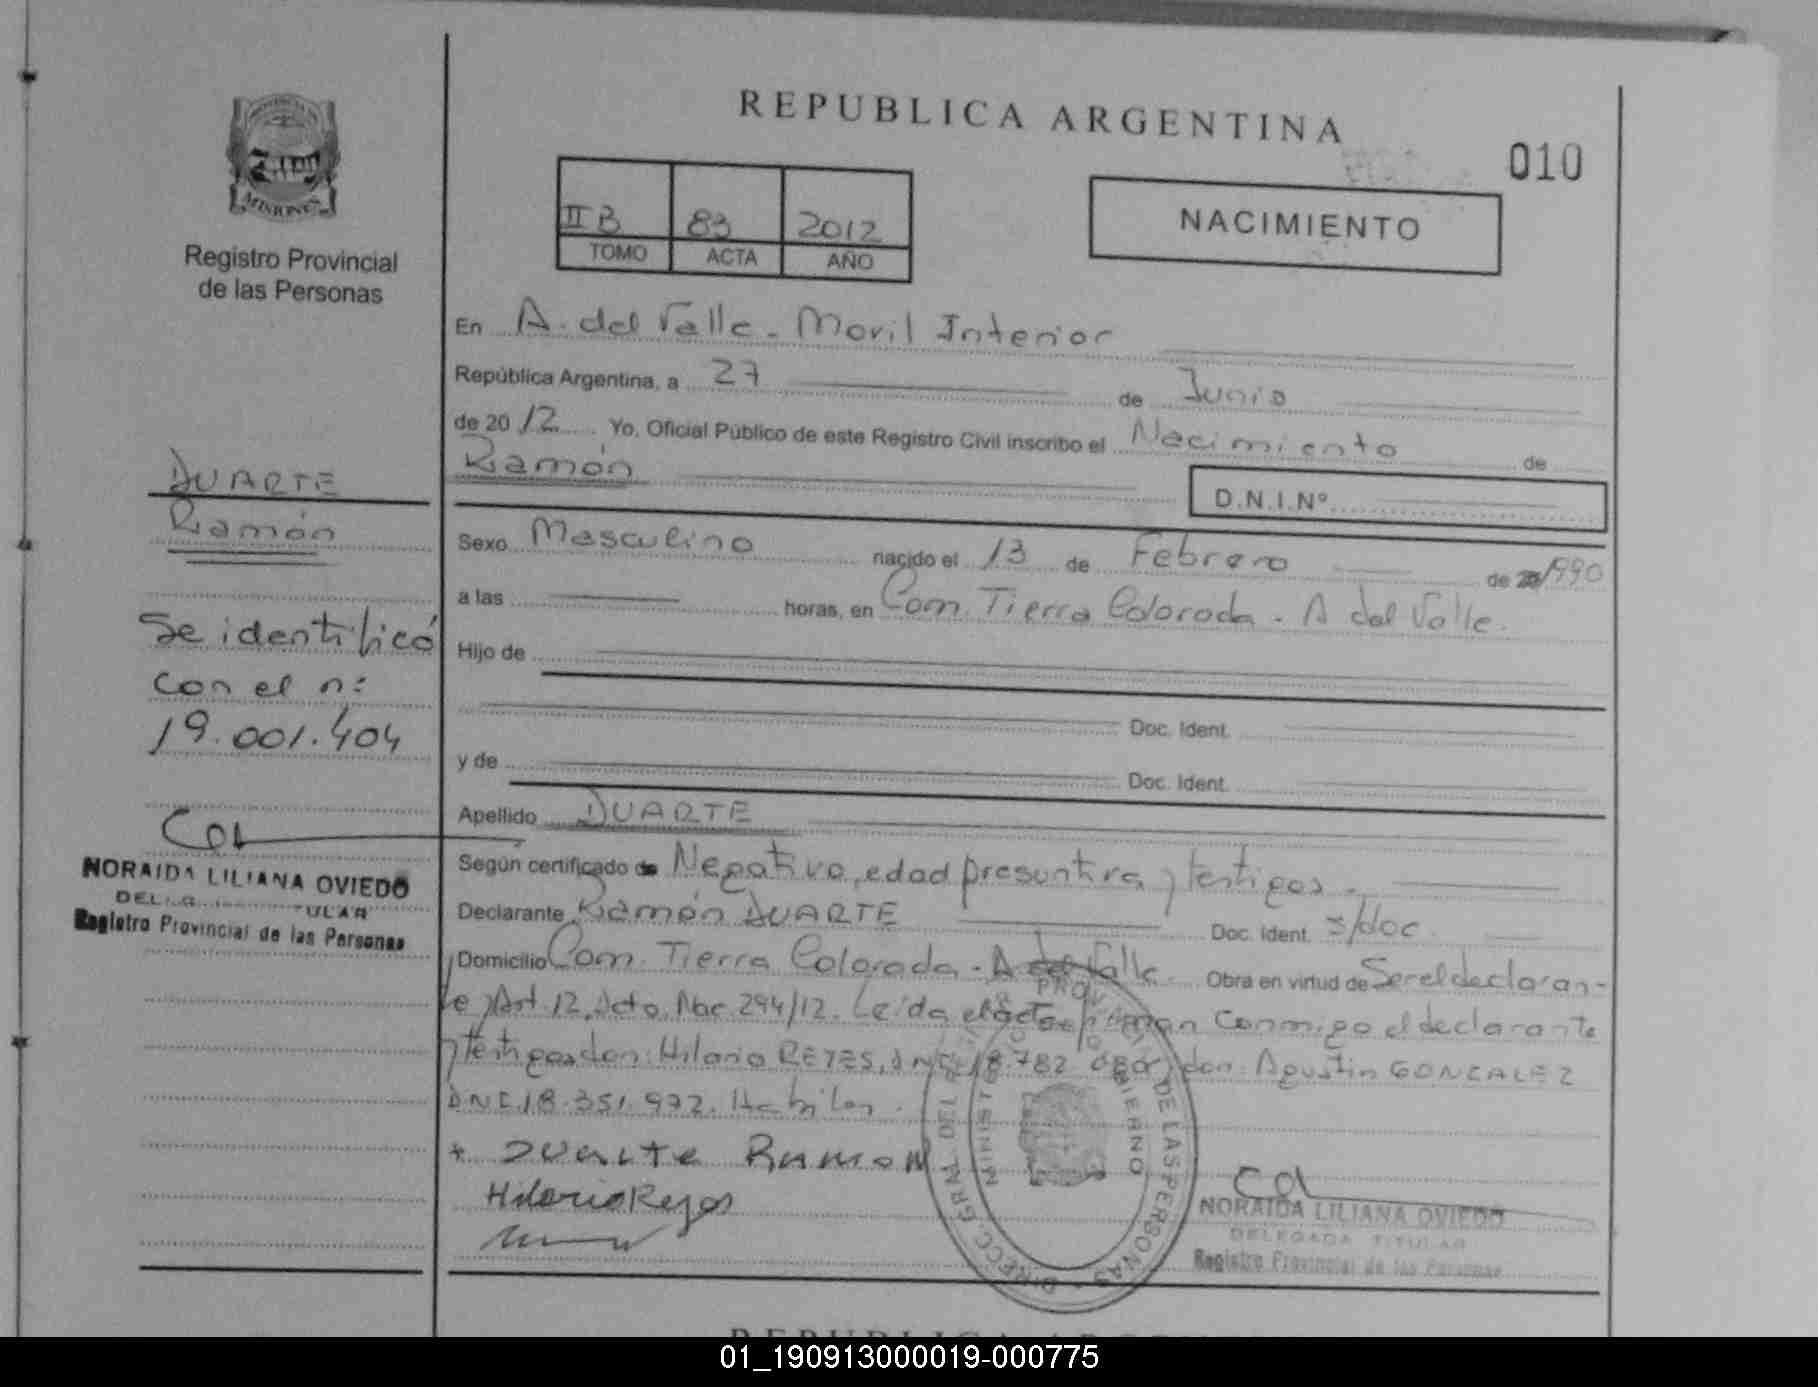 REPUBLICA ARGENTINA
010
MISIONES
Registro Provincial
de las Personas
II B 83 2012
TOMO ACTA AÑO
NACIMIENTO
En A. del Valle - Movil Interior
República Argentina, a 27 de Junio
de 2012 Yo, Oficial Público de este Registro Civil inscribo el Nacimiento de
Ramón
D.N.I.Nº
DUARTE
Ramón
Se identificó
con el n:
19.001.404
NORAIDA LILIANA OVIEDO
Registro Provincial de las Personas
Sexo Masculino nacido el 13 de Febrero de 1990
a las horas, en Com. Tierra Colorada - A del Valle.
Hijo de
Doc. Ident.
y de Doc. Ident.
Apellido DUARTE
Según certificado de Negativo, edad presuntiva y testigos.
Declarante Ramón DUARTE Doc. Ident. s/doc
Domicilio Com. Tierra Colorada - A del Valle Obra en virtud de Ser el declaran-
te y Art. 12, Acto. Nac. 294/12. Leída el acta firman conmigo el declarante
y testigos don: Hilario REYES, DNI 18.782. don: Agustin GONZALEZ
DNI 18.351.972. Habiles.
* Duarte Ramon
Hilario Reyes
DIRECC. GRAL. DEL REG. PROV. DE LAS PERSONAS
MINISTERIO GOBIERNO
NORAIDA LILIANA OVIEDO
DELEGADA TITULAR
Registro Provincial de las Personas
01_190913000019-000775